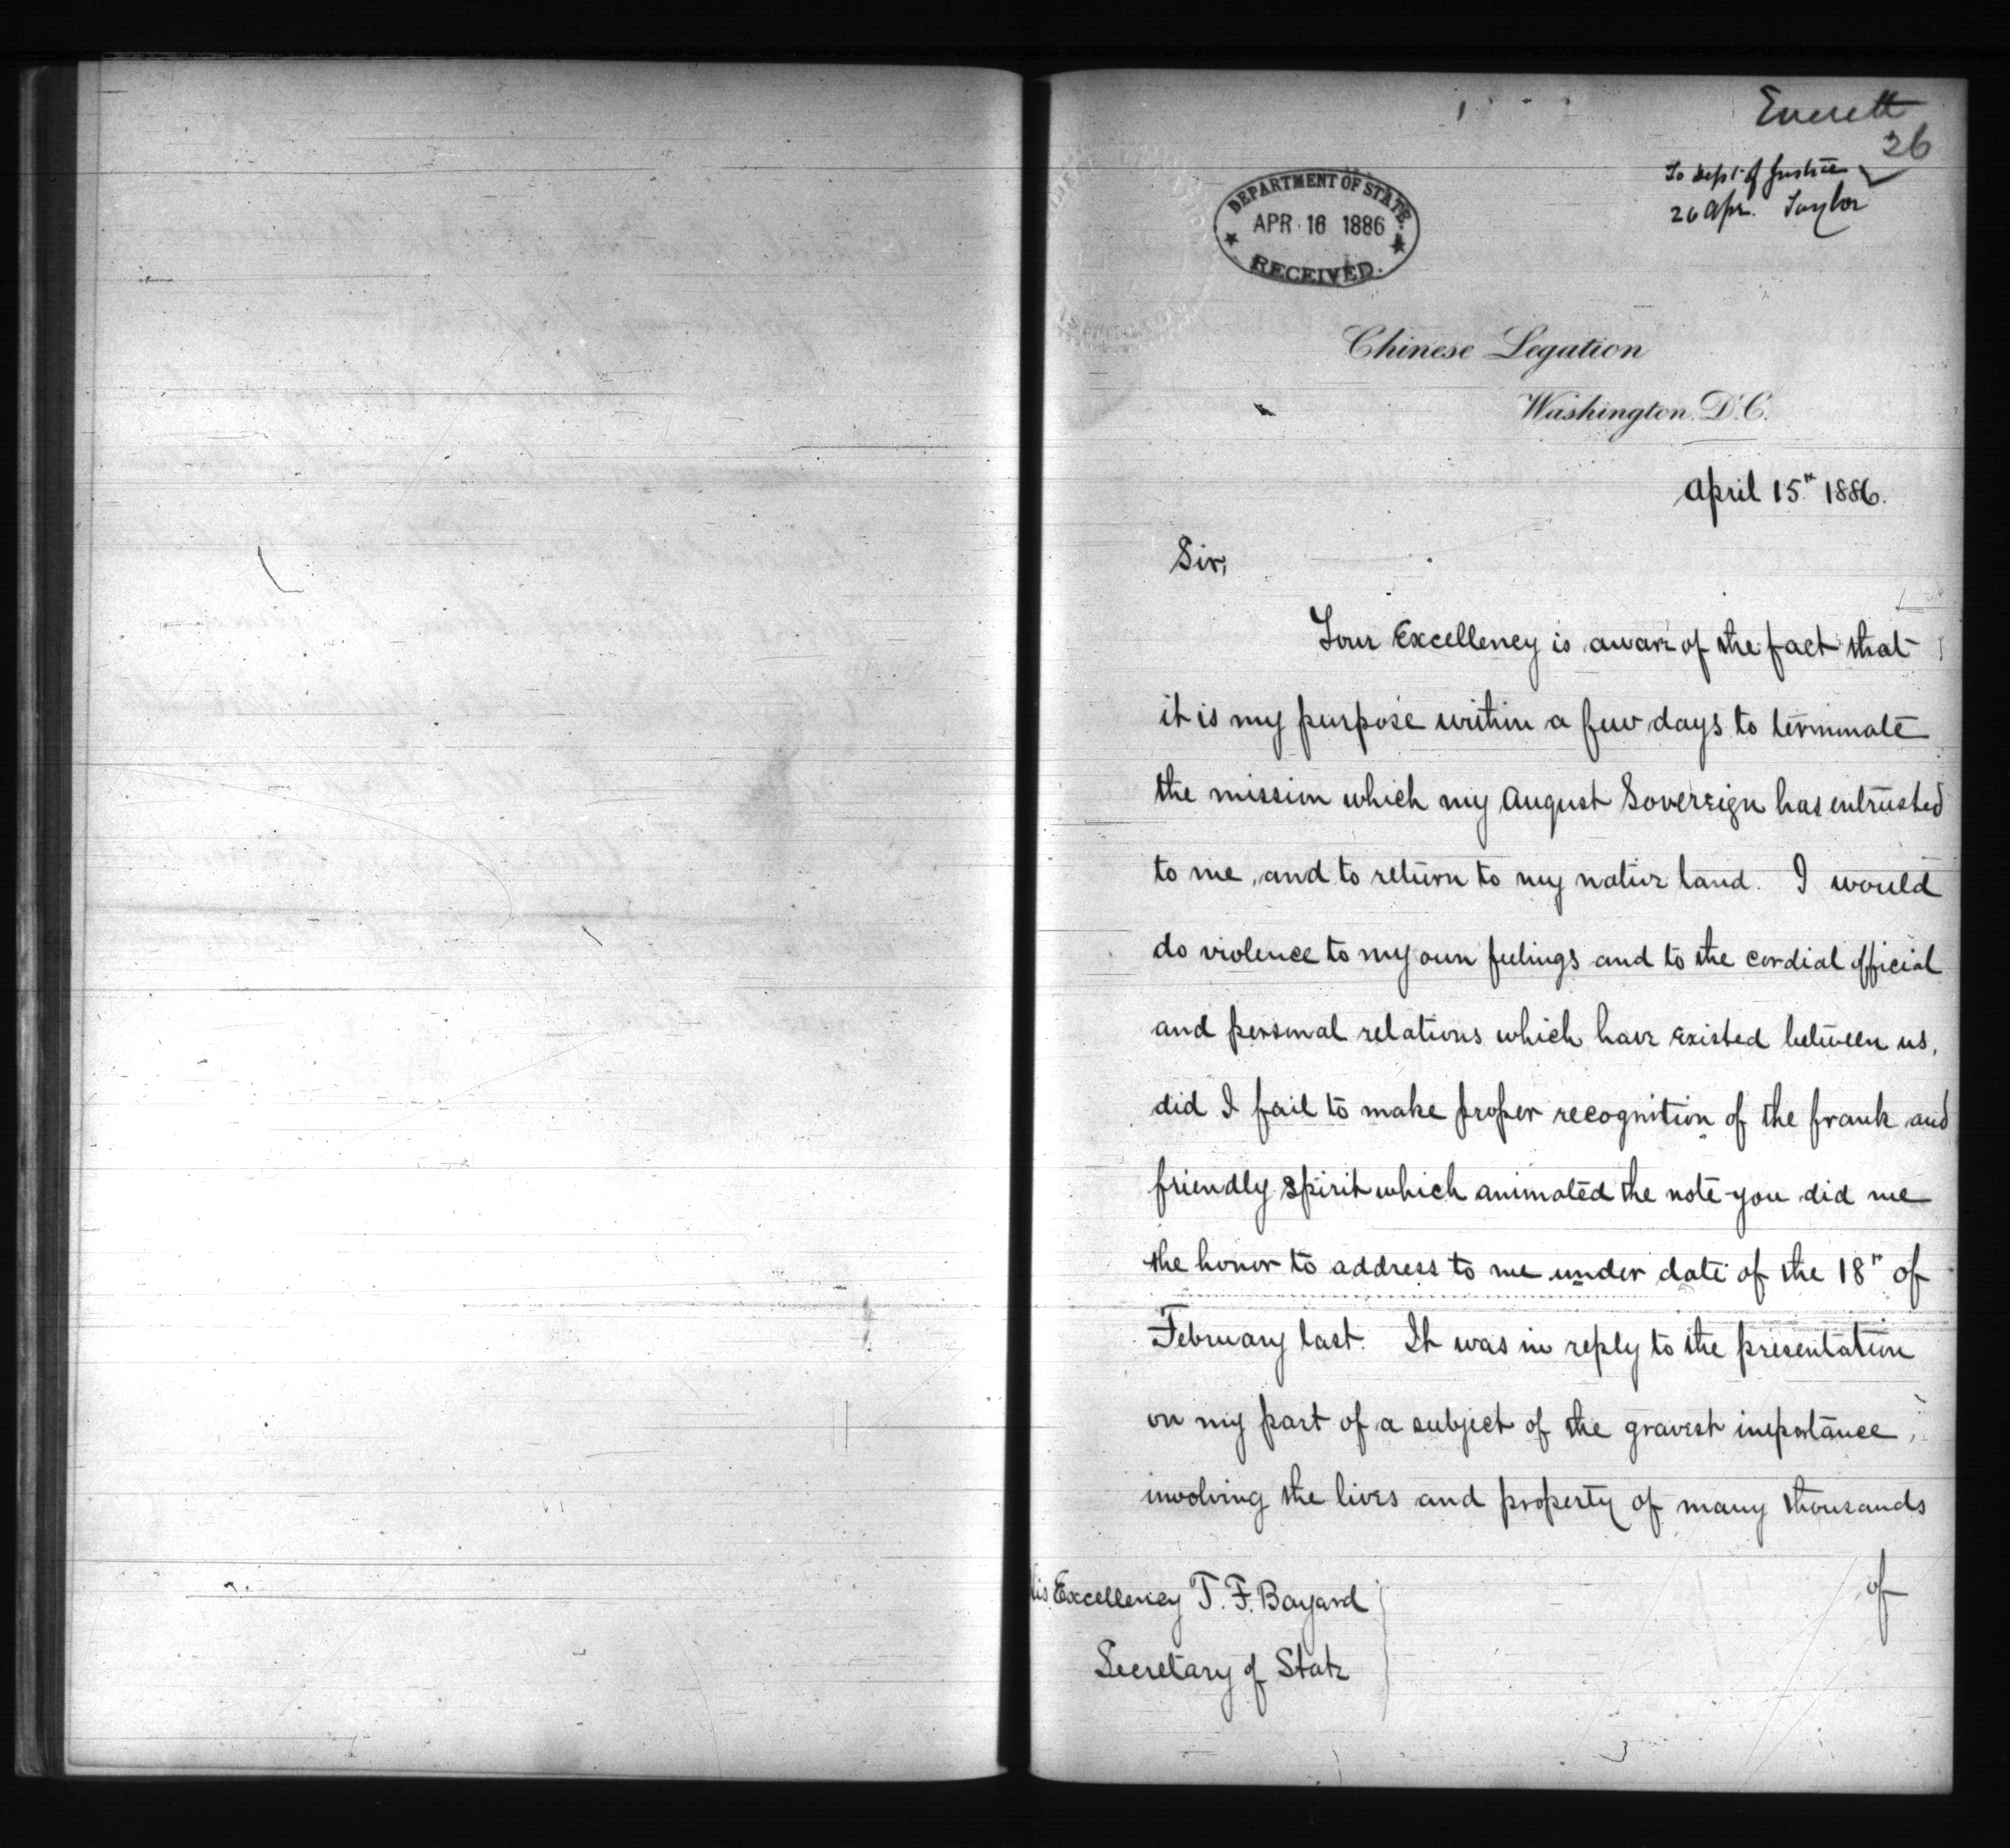 Everett
26
To Dept of Justice
26 Apr. Taylor
DEPARTMENT OF STATE.
APR 16 1886
RECEIVED.
Chinese Legation
Washington. D.C.
April 15th 1886.
Sir,
Your Excellency is aware of the fact that
it is my purpose within a few days to terminate
the mission which my August Sovereign has entrusted
to me, and to return to my native land. I would
do violence to my own feelings and to the cordial official
and personal relations which have existed between us,
did I fail to make proper recognition of the frank and
friendly spirit which animated the note you did me
the honor to address to me under date of the 18th of
February last. It was in reply to the presentation
on my part of a subject of the gravest importance,
involving the lives and property of many thousands
of
His Excellency T. F. Bayard
Secretary of State